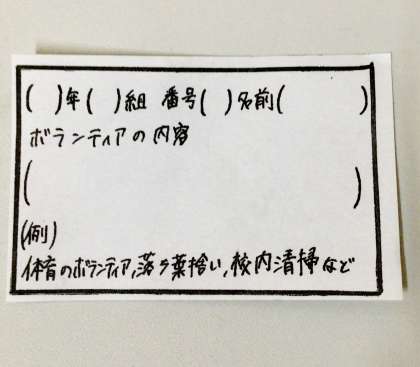 ( )年( )組 番号( )名前( )
ボランティアの内容
( )
(例)
体育のボランティア,落ち葉拾い,校内清掃など